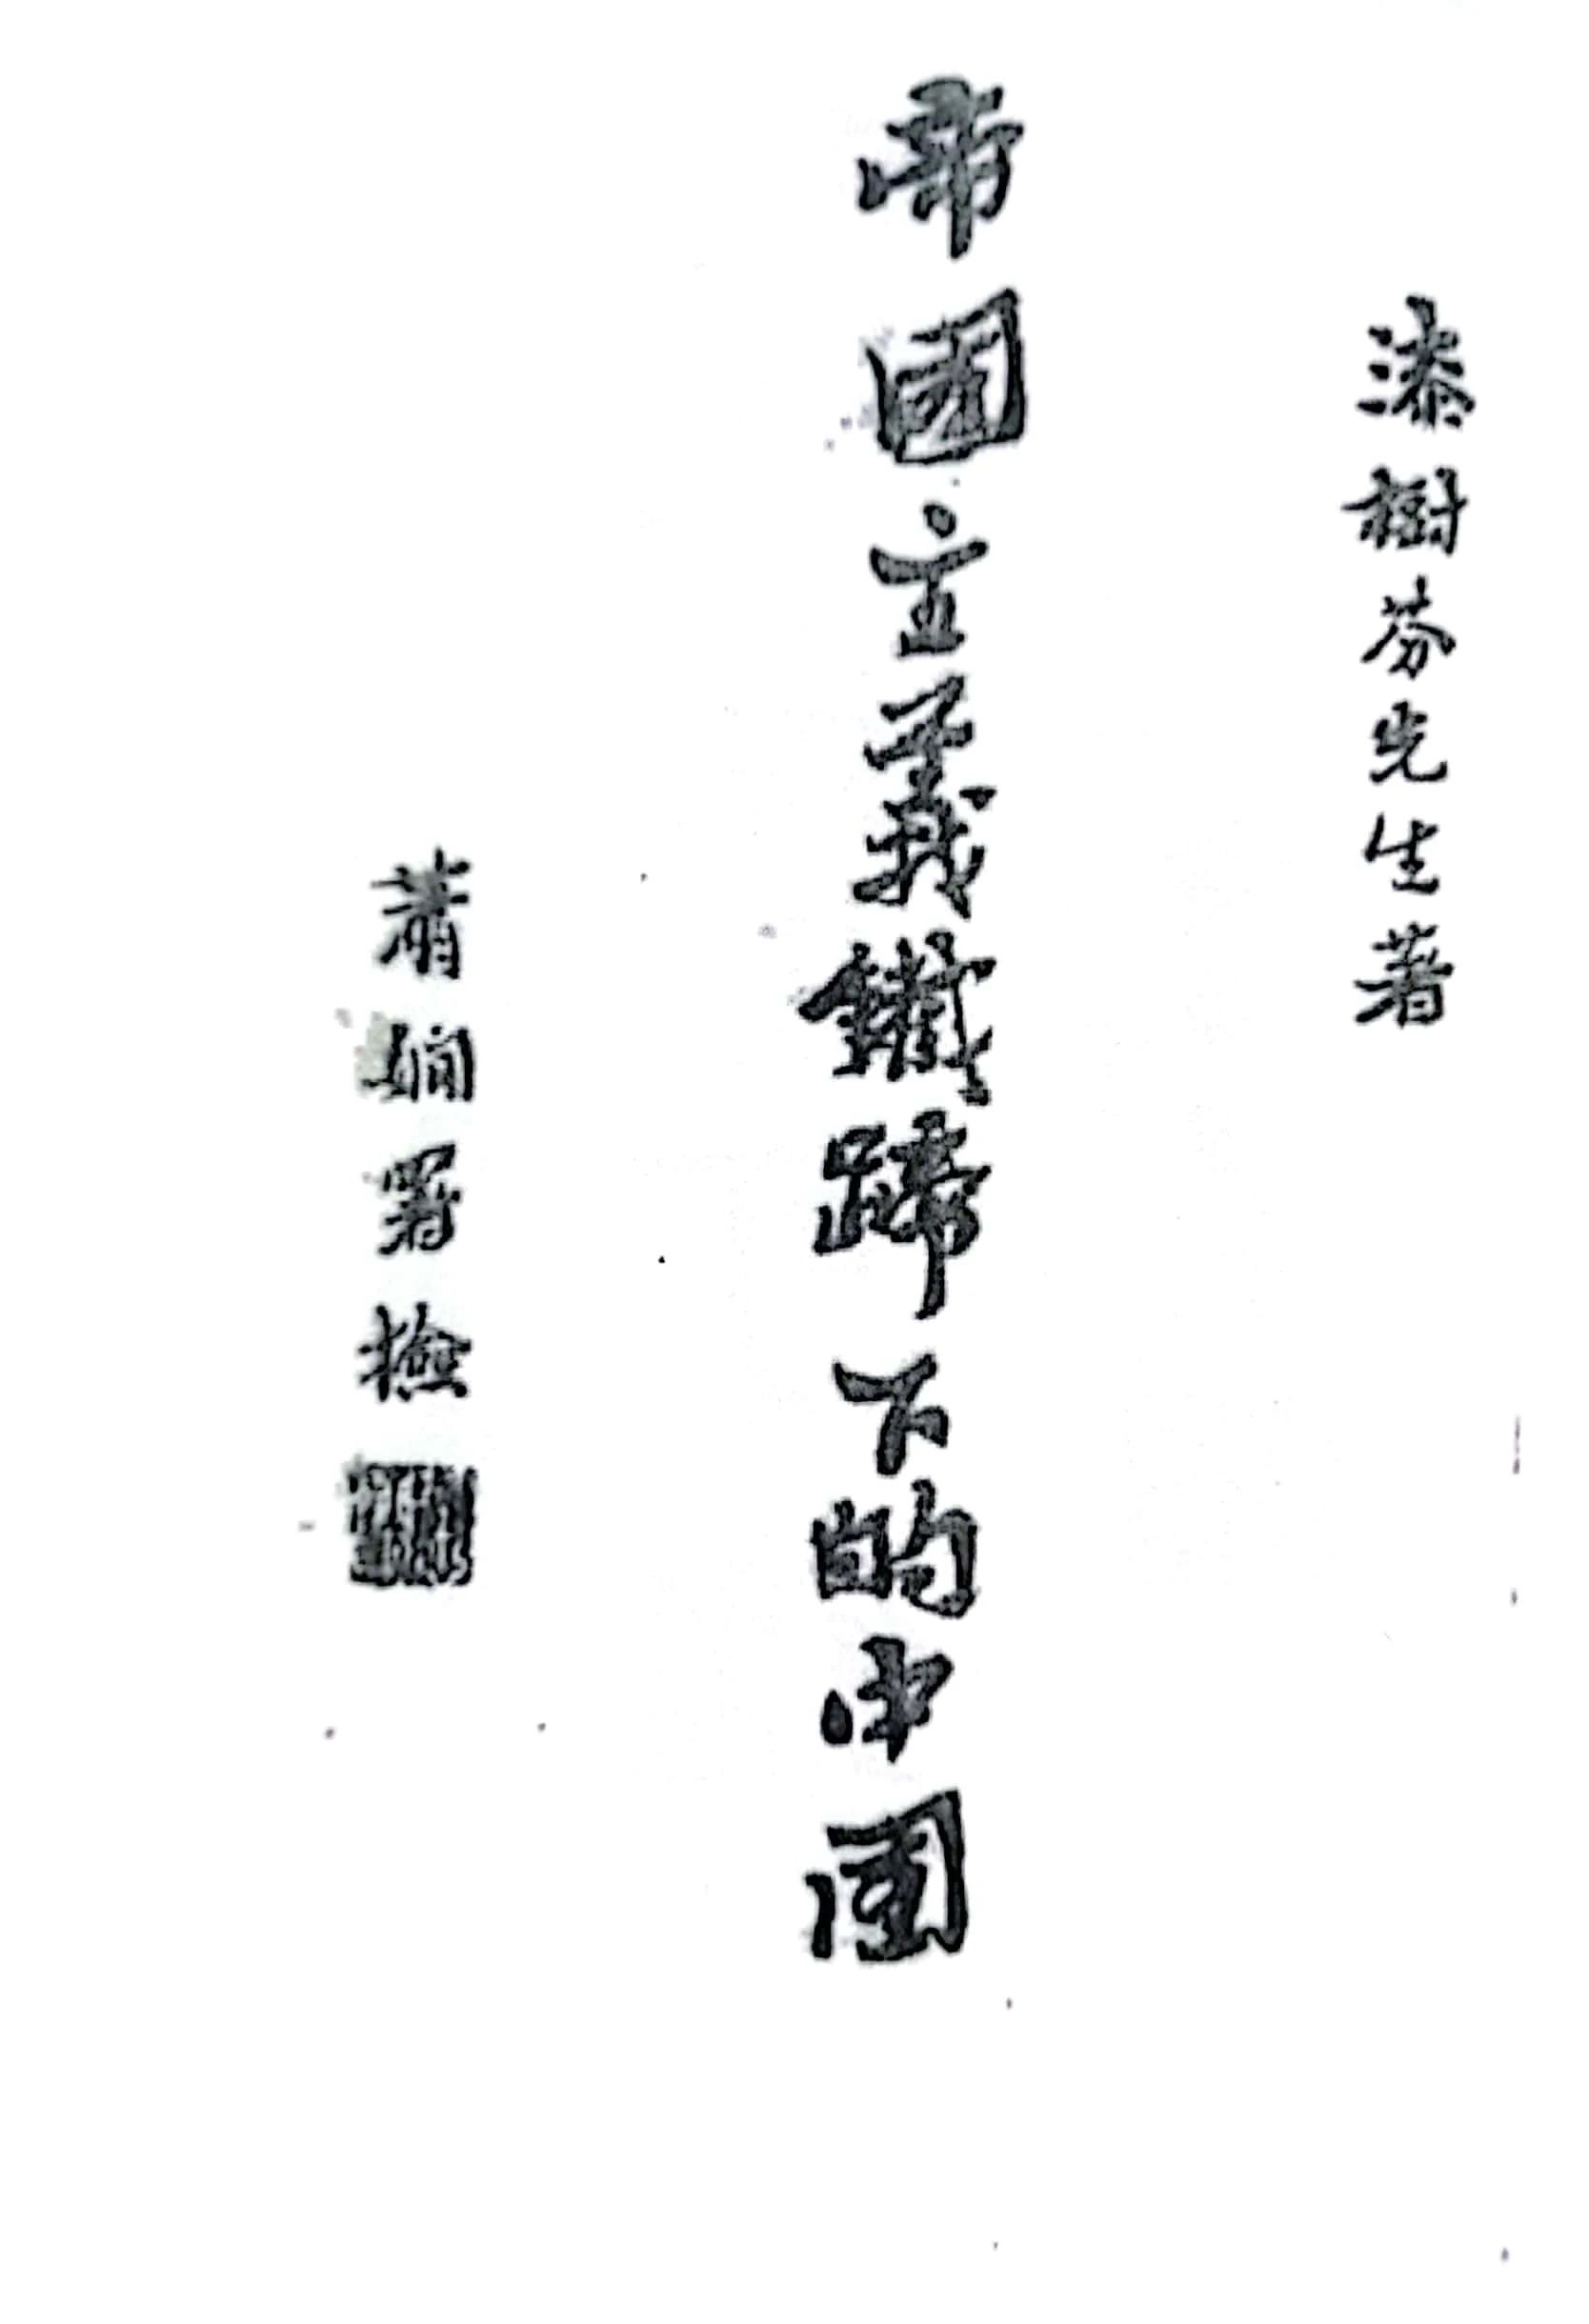 漆樹芬先生著
帝國主義鐵蹄下的中國
蕭嫻署檢